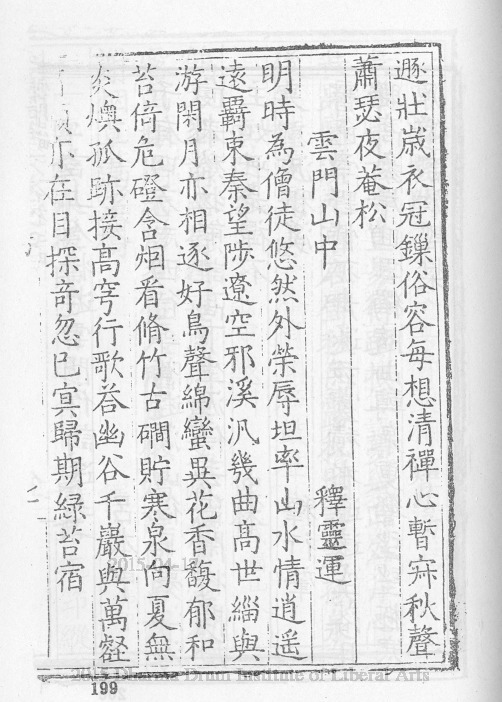 遯壯嵗衣冠鏁俗容每想清禪心暫寐秋聲
蕭瑟夜菴松
雲門山中 釋靈運
明時為僧徒悠然外榮辱坦率山水情逍遥
遠覇東秦望陟遼空邪溪汎幾曲髙世緇與
游閑月亦相逐好鳥聲綿蠻異花香馥郁和
苔倚危磴含烟看脩竹古磵貯寒泉向夏無
炎燠孤跡接髙穹行歌荅幽谷千巖與萬壑
亦在目探竒忽已㝠歸期緑苔宿
2015-04-12
Dharma Drum Institute of Liberal Arts
199